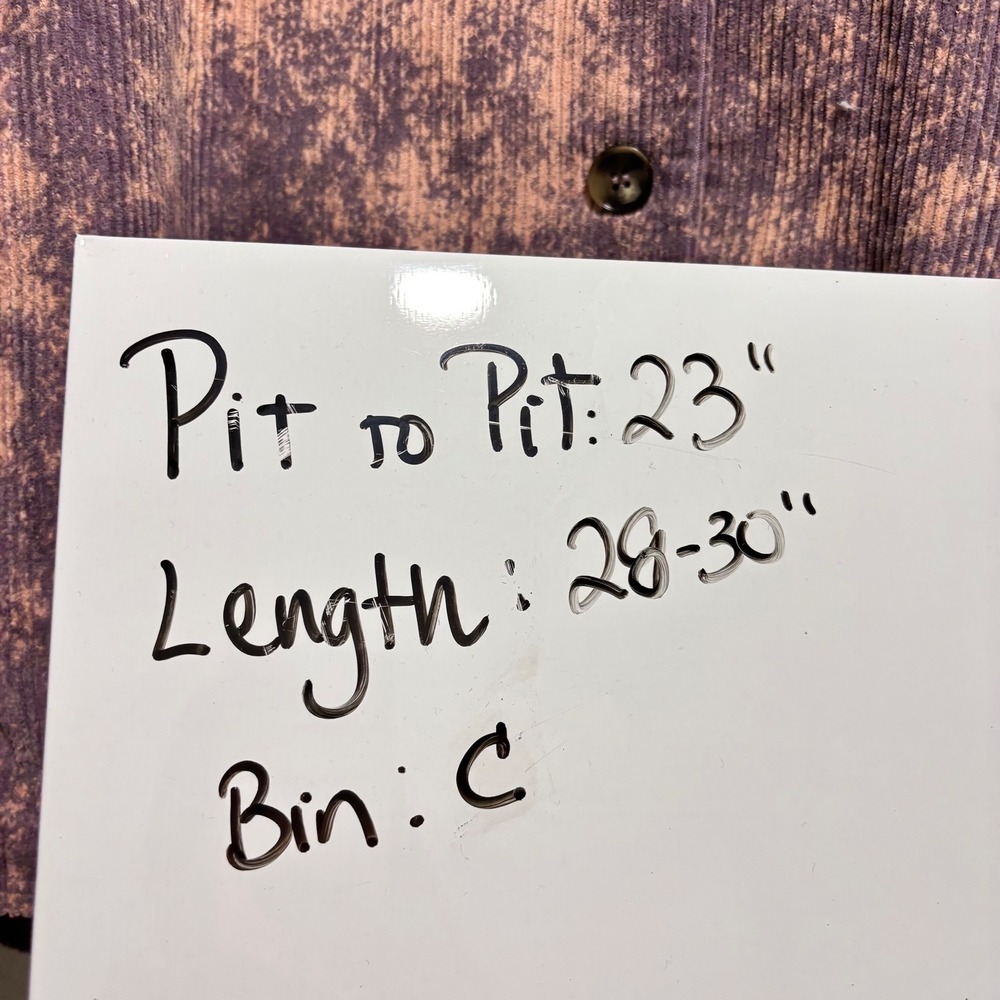 Pit to Pit: 23"
Length: 28-30"
Bin: C